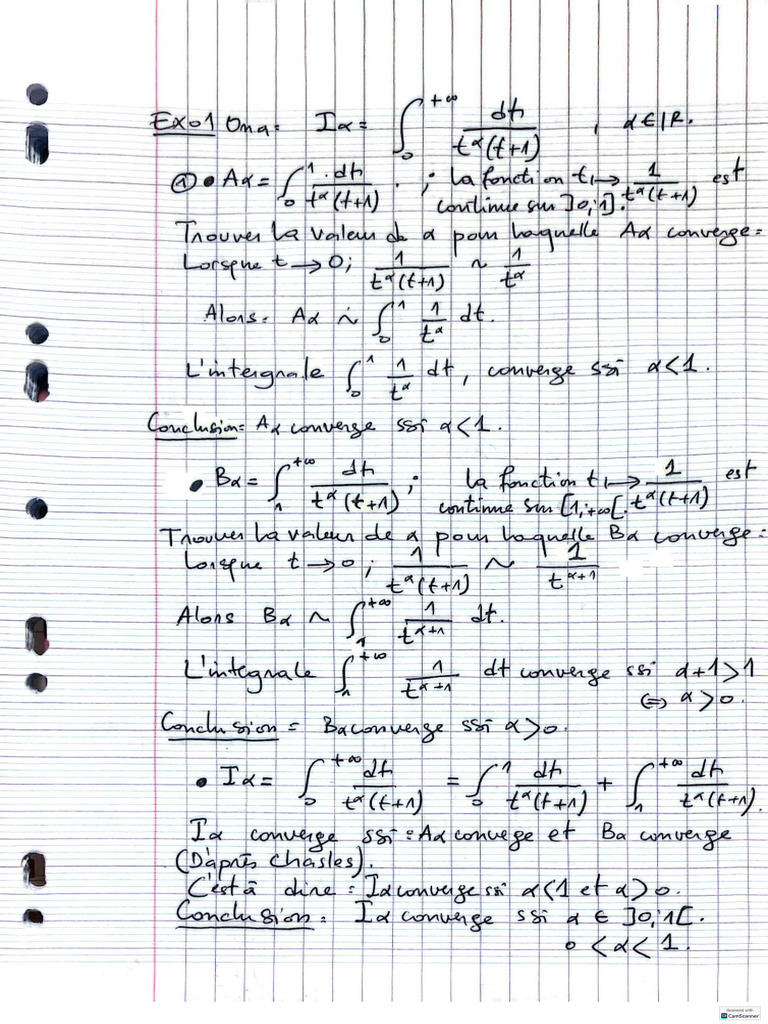 Exo1 Ona: Iα = ∫₀^{+∞} dt / t^α(t+1) , α ∈ IR.
ⓐ • Aα = ∫₀^1 dt / t^α(t+1) . ; la fonction t ↦ 1 / t^α(t+1) est
continue sur ]0;1].
Trouver la valeur de α pour laquelle Aα converge:
Lorsque t → 0; 1 / t^α(t+1) ~ 1 / t^α
Alors: Aα ~ ∫₀^1 1 / t^α dt.
L'intergnale ∫₀^1 1 / t^α dt, converge ssi α<1.
Conclusion: Aα converge ssi α<1.
• Bα = ∫₁^{+∞} dt / t^α(t+1) ; la fonction t ↦ 1 / t^α(t+1) est
continue sur [1,+∞[.
Trouver la valeur de α pour laquelle Bα converge:
Lorsque t → 0 ; 1 / t^α(t+1) ~ 1 / t^{α+1}
Alors Bα ~ ∫₁^{+∞} 1 / t^{α+1} dt.
L'integnale ∫₁^{+∞} 1 / t^{α+1} dt converge ssi α+1>1
⇔ α>0.
Conclusion = Bα converge ssi α>0.
• Iα = ∫₀^{+∞} dt / t^α(t+1) = ∫₀^1 dt / t^α(t+1) + ∫₁^{+∞} dt / t^α(t+1).
Iα converge ssi: Aα convege et Bα converge
(D'après chasles).
C'est à dire: Iα converge ssi α<1 et α>0.
Conclusion: Iα converge ssi α ∈ ]0;1[.
0<α<1.
Scanned with
CamScanner